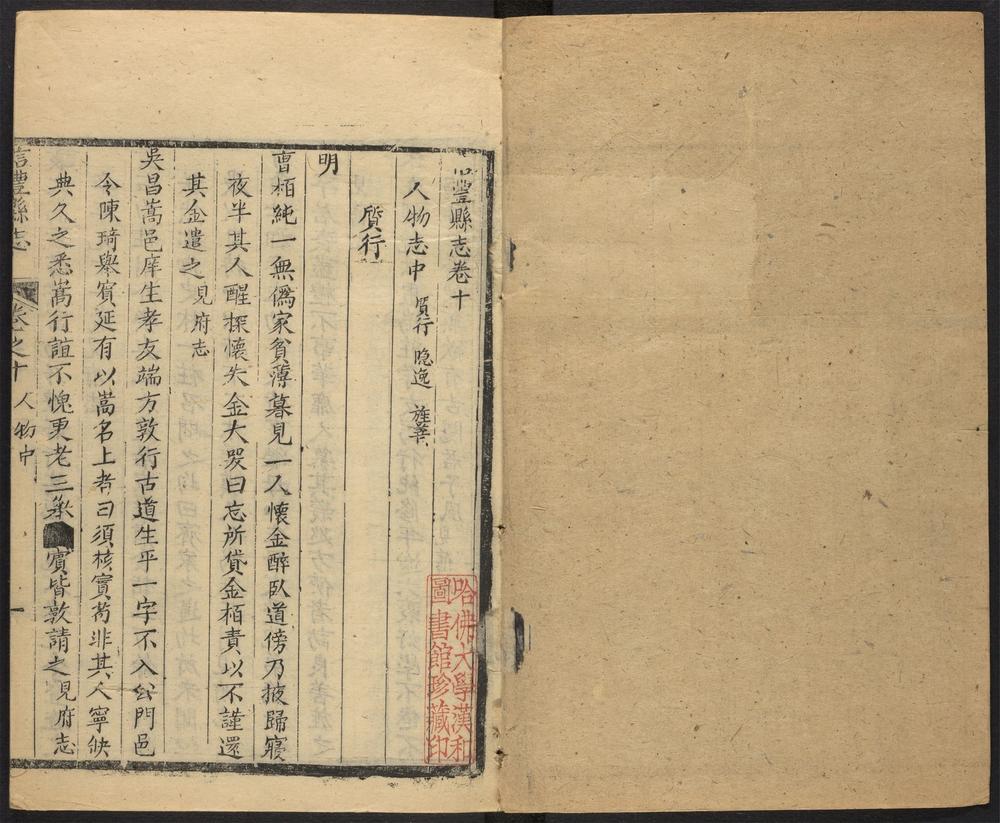 信豐縣志卷十
人物志中 質行 隐逸 旌善
質行
明
曹栢純一無僞家貧薄暮見一人懷金醉臥道傍乃掖歸寢
夜半其人醒探懷失金大哭曰忘所貸金栢責以不謹還
其金遣之見府志
吳昌蒿邑庠生孝友端方敦行古道生平一字不入公門邑
令陳琦舉賓延有以蒿名上者曰須核實茍非其人寧缺
典久之悉蒿行誼不愧更老三舉賓皆敦請之見府志
信豐縣志 卷之十 人物中 一
哈佛大學漢和
圖書館珍藏印